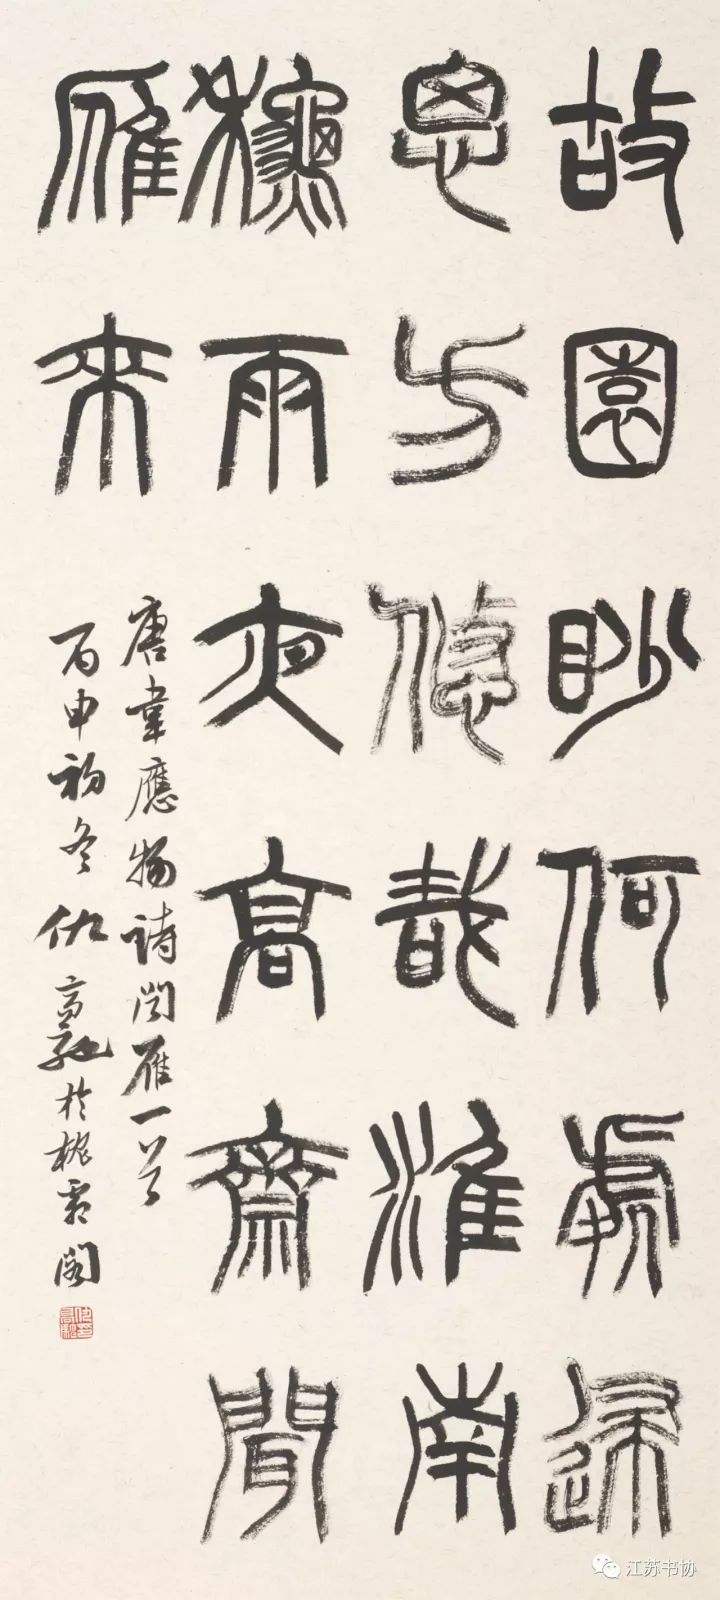 故園眇何處歸
思方悠哉淮南
龝雨夜高齋聞
雁來
唐韋應物詩聞雁一首
丙申初冬仇高馳於閣
江苏书协